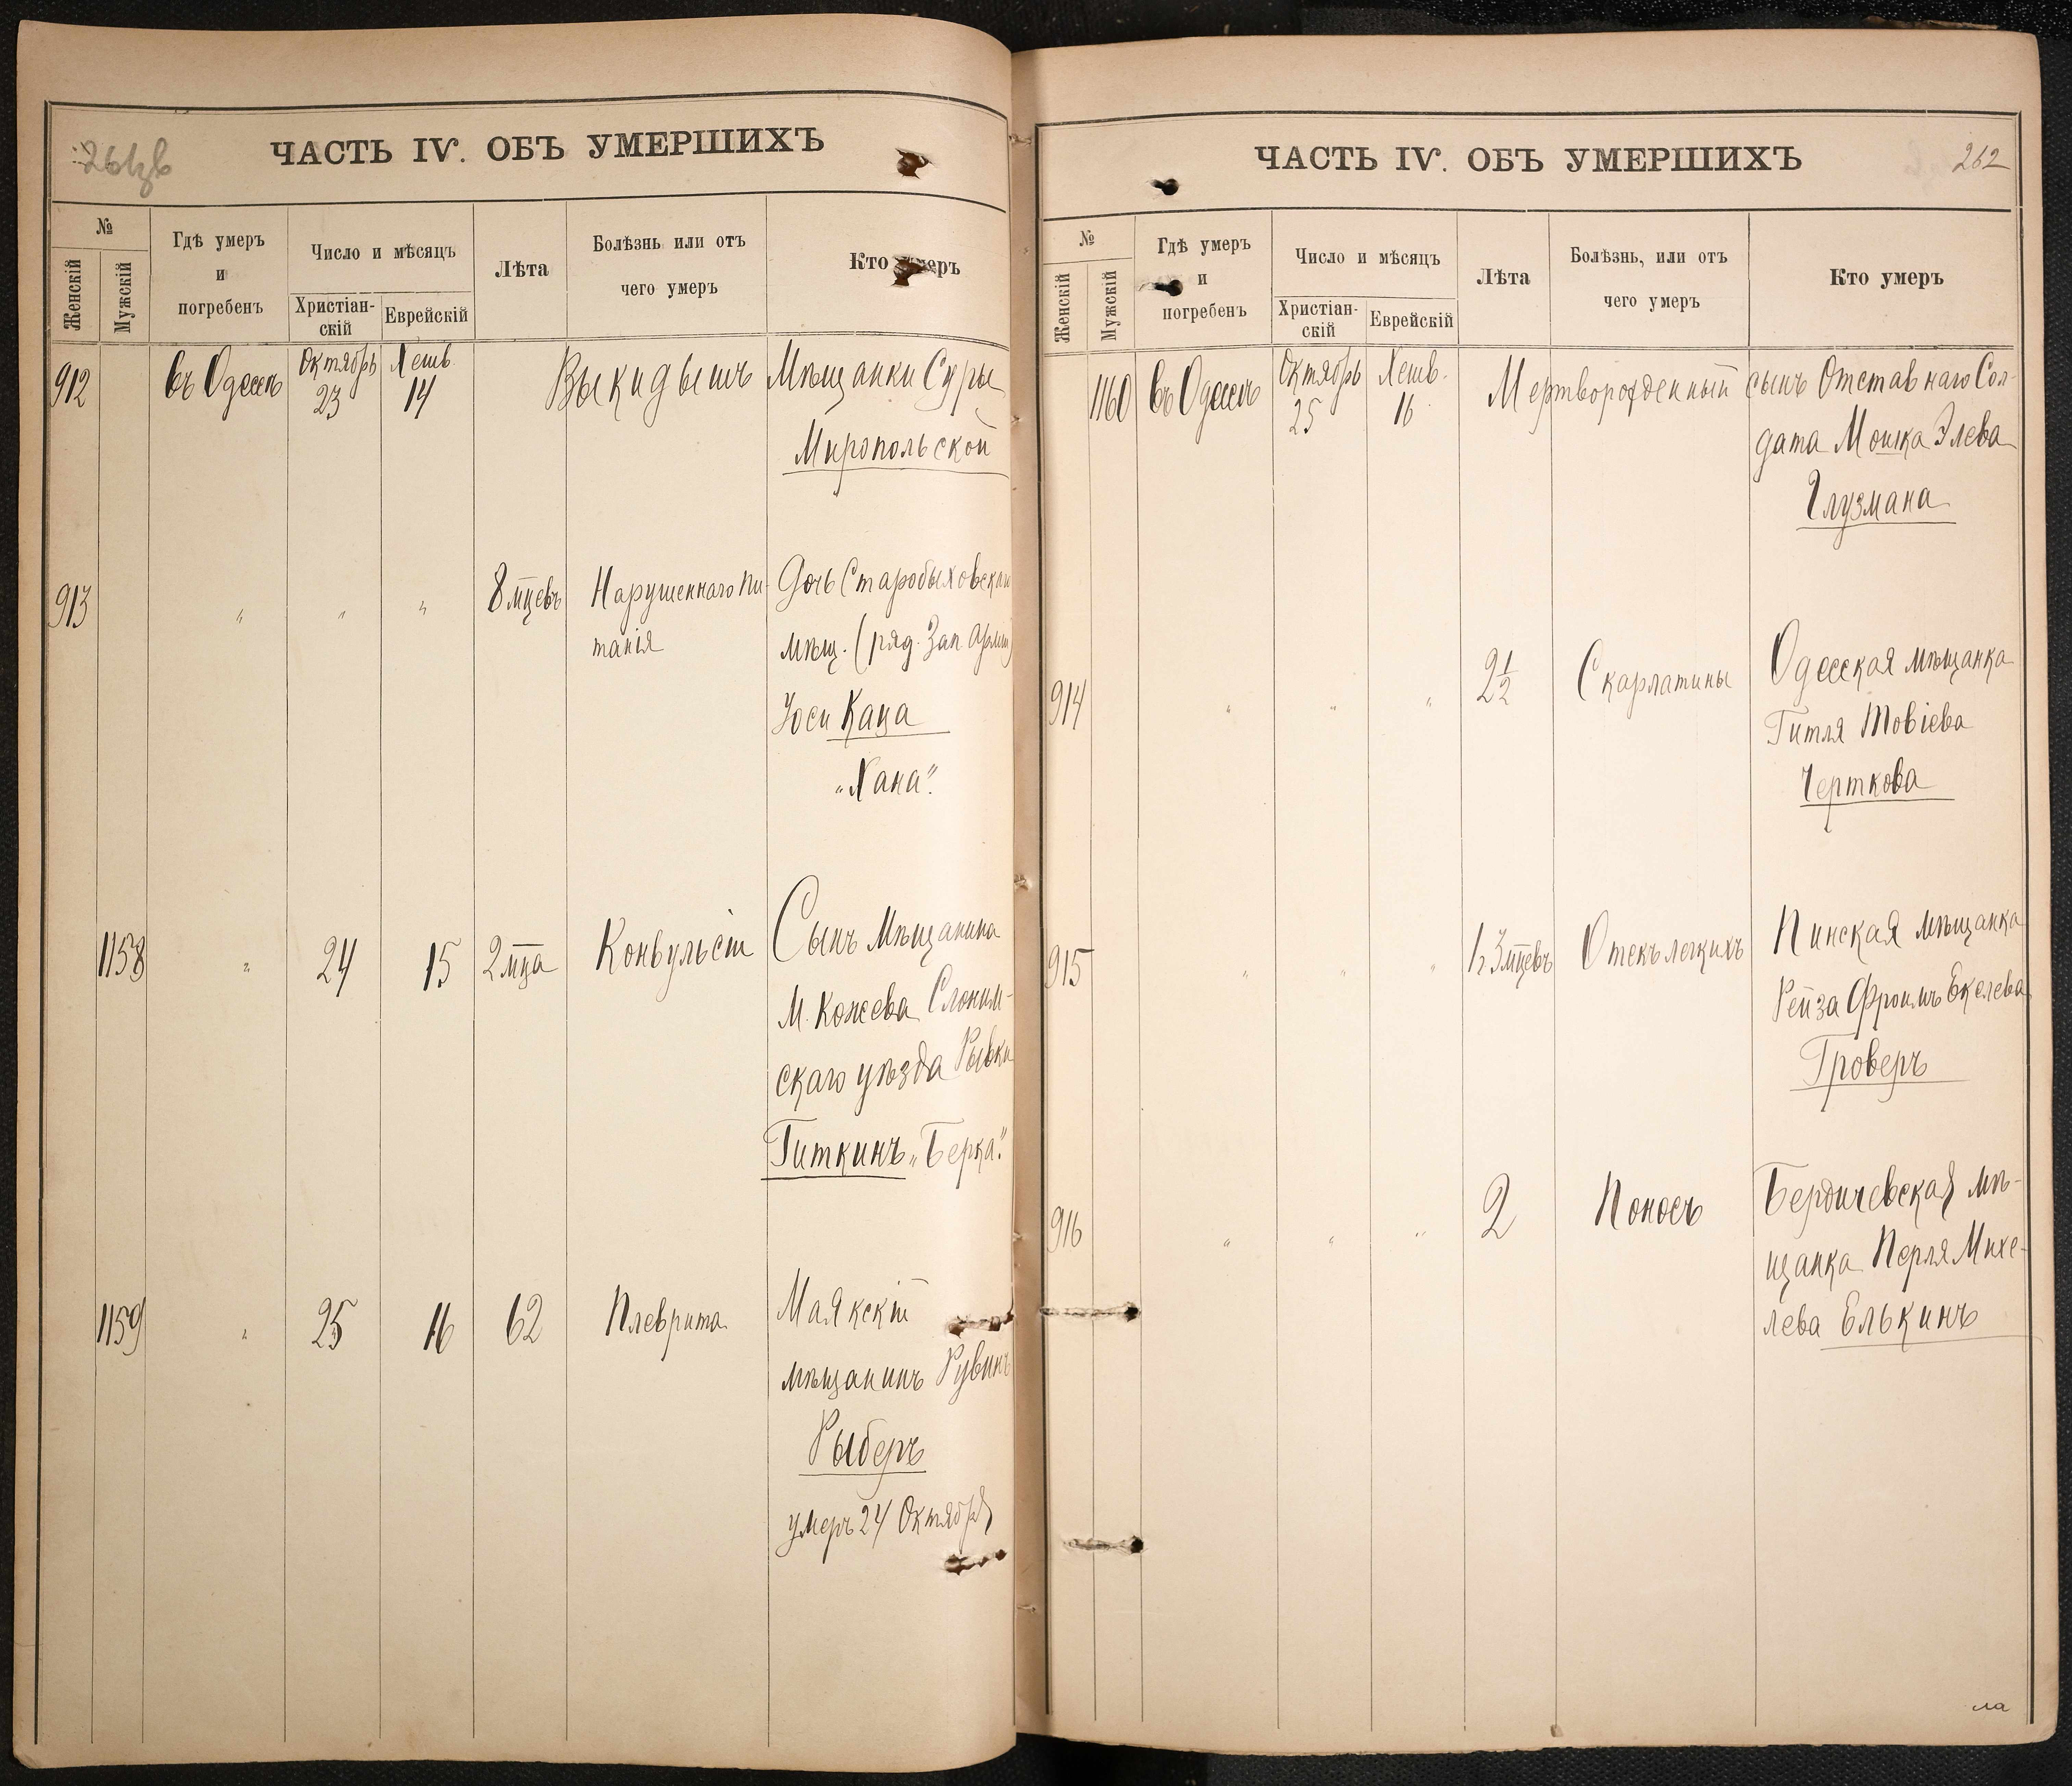 261зв
ЧАСТЬ IV. ОБЪ УМЕРШИХЪ
№
Женскій
Мужскій
Гдѣ умеръ
и
погребенъ
Число и мѣсяцъ
Христіан-
скій
Еврейскій
Лѣта
Болѣзнь или отъ
чего умеръ
Кто умеръ
912 въ Одессѣ Октябрь 23 Хешв. 14 Выкидышъ Мѣщанки Суры
Миропольской
913 " " " 8 мцевъ Нарушеннаго пи- Дочь Старобыховскаго
танія мѣщ. (ряд. Зап. Арміи)
Іоси Каца
"Хана".
1158 " 24 15 2 мца Конвульсіи Сынъ Мѣщанина
М. Кожева Слоним-
скаго уѣзда Рывки
Гиткинъ "Берка".
1159 " 25 16 62 Плеврита Маякскій
мѣщанинъ Рувинъ
Рыберъ
умеръ 24 Октября
262
ЧАСТЬ IV. ОБЪ УМЕРШИХЪ
№
Женскій
Мужскій
Гдѣ умеръ
и
погребенъ
Число и мѣсяцъ
Христіан-
скій
Еврейскій
Лѣта
Болѣзнь, или отъ
чего умеръ
Кто умеръ
1160 въ Одессѣ Октябрь 25 Хешв. 16 Мертворожденный сынъ Отставнаго Сол-
дата Мошка Элева
Глузмана
914 " " " 2 1/2 Скарлатины Одесская мѣщанка
Гитля Товіева
Черткова
915 " " " 1 г 3 мцевъ Отекъ легкихъ Пинская мѣщанка
Рейза Фроимъ Екелева
Гроверъ
916 " " " 2 Поносъ Бердичевская мѣ-
щанка Перля Михе-
лева Елькинъ
ла